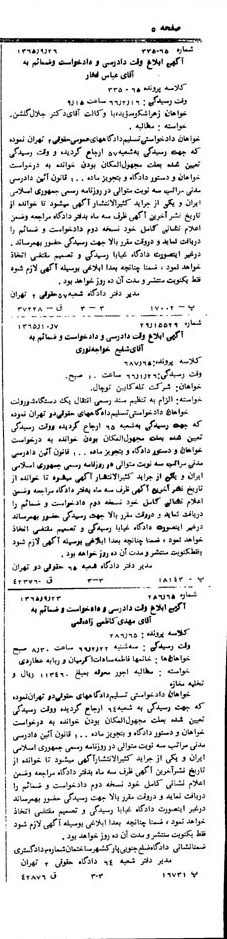 صفحه ۵
شماره ۳۳۵-۶۵ ۱۳۶۵/۹/۲۶
آگهی ابلاغ وقت دادرسی و دادخواست وضمائم به
آقای عباس فخار
کلاسه پرونده ۶۵-۳۳۵
وقت رسیدگی: ۶۶/۲/۱۶ ساعت ۹/۱۵
خواهان: زهرا با وکالت آقای دکتر جلال گلشن.
خواسته: مطالبه.
خواهان دادخواستی تسلیم دادگاههای عمومی حقوقی ۲ تهران نموده
که جهت رسیدگی به شعبه ۵۷ ارجاع گردیده و وقت رسیدگی
تعیین شده بعلت مجهول‌المکان بودن خوانده به درخواست
خواهان و دستور دادگاه و بتجویز ماده ۱۰۰ قانون آئین دادرسی
مدنی مراتب سه نوبت متوالی در روزنامه رسمی جمهوری اسلامی
ایران و یکی از جراید کثیرالانتشار آگهی میشود تا خوانده از
تاریخ نشر آخرین آگهی ظرف سه ماه بدفتر دادگاه مراجعه وضمن
اعلام نشانی کامل خود نسخه دوم دادخواست و ضمائم را
دریافت نماید و در وقت مقرر بالا جهت رسیدگی حضور بهمرساند.
در غیر اینصورت دادگاه غیابا رسیدگی و تصمیم مقتضی اتخاذ
خواهد نمود، ضمنا چنانچه بعدا ابلاغی بوسیله آگهی لازم شود
فقط یکنوبت منتشر و مدت آن ده روز خواهد بود.
مدیر دفتر دادگاه شعبه ۵۷ حقوقی ۲ تهران
پ — ۱۷۰۰۲ ۳-۳ ق — ۳۷۲۲۸
شماره ۲۹/۱۵۵۲۹ ۱۳۶۵/۱۰/۷
آگهی ابلاغ وقت دادرسی و دادخواست و ضمائم به
آقای شفیع خواجه نوری
کلاسه پرونده: ۶۸۷/۶۵
وقت رسیدگی: ۶۶/۱/۲۶ ساعت ۱۰ صبح.
خواهان: شرکت تله‌کابین توچال.
خواسته: الزام به تنظیم سند رسمی انتقال یک دستگاه شورولت
خواهان دادخواستی تسلیم دادگاههای حقوقی دو تهران نموده
که جهت رسیدگی به شعبه ۶۵ ارجاع گردیده و وقت رسیدگی
تعیین شده بعلت مجهول‌المکان بودن خوانده به درخواست
خواهان و دستور دادگاه و بتجویز ماده ۱۰۰ قانون آئین دادرسی
مدنی مراتب سه نوبت متوالی در روزنامه رسمی جمهوری اسلامی
ایران و یکی از جراید کثیرالانتشار آگهی میشود تا خوانده از
تاریخ نشر آخرین آگهی ظرف سه ماه بدفتر دادگاه مراجعه وضمن
اعلام نشانی کامل خود نسخه دوم دادخواست و ضمائم را
دریافت نماید و در وقت مقرر بالا جهت رسیدگی حضور بهمرساند
در غیر اینصورت دادگاه غیابا رسیدگی و تصمیم مقتضی اتخاذ
خواهد نمود، ضمنا چنانچه بعدا ابلاغی بوسیله آگهی لازم شود
فقط یکنوبت منتشر و مدت آن ده روز خواهد بود.
مدیر دفتر دادگاه شعبه ۶۵ حقوقی دو تهران
پ — ۱۸۱۴۳ ۳-۳ ق — ۴۲۳۷۶
شماره ۲۸۶/۶۵ ۱۳۶۵/۹/۲۳
آگهی ابلاغ وقت دادرسی و دادخواست و ضمائم به
آقای مهدی کاظمی زاده لمی
کلاسه پرونده: ۲۸۶/۶۵
وقت رسیدگی: سه‌شنبه ۶۶/۲/۲۲ ساعت ۸/۳۰ صبح
خواهان‌ها: خانمها فاطمه سادات اکرمیان و ربابه عطاردی
خواسته: مطالبه اجور معوقه بمبلغ ۱۱۳۶۹۰ ریال و
تخلیه مغازه
خواهان دادخواستی تسلیم دادگاههای حقوقی دو تهران نموده
که جهت رسیدگی به شعبه ۶۴ ارجاع گردیده و وقت رسیدگی
تعیین شده بعلت مجهول‌المکان بودن خوانده بدرخواست
خواهان و دستور دادگاه و بتجویز ماده ۱۰۰ قانون آئین دادرسی
مدنی مراتب سه نوبت متوالی در روزنامه رسمی جمهوری اسلامی
ایران و یکی از جراید کثیرالانتشار آگهی میشود تا خوانده از
تاریخ نشر آخرین آگهی ظرف سه ماه بدفتر دادگاه مراجعه وضمن
اعلام نشانی کامل خود نسخه دوم دادخواست و ضمائم را
دریافت نماید و در وقت مقرر بالا جهت رسیدگی حضور بهمرساند
در غیر اینصورت دادگاه غیابا رسیدگی و تصمیم مقتضی اتخاذ
خواهد نمود، ضمنا چنانچه بعدا ابلاغی بوسیله آگهی لازم شود
فقط یکنوبت منتشر و مدت آن ده روز خواهد بود.
ضمنا نشانی دادگاه ضلع جنوبی پارکشهر ساختمان شماره دو دادگستری
مدیر دفتر شعبه ۶۴ دادگاه حقوقی ۲ تهران
پ ۱۶۷۳۱ ۳-۳ ق ۴۲۸۷۶